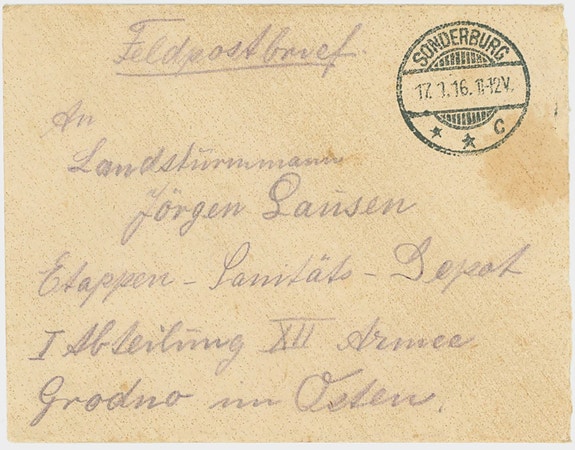 Feldpostbrief
SONDERBURG
17.1.16. 11-12V.
* * C
An
Landsturmmann
Jörgen Lausen
Etappen - Sanitäts - Depot
I Abteilung XII Armee
Grodno im Osten.